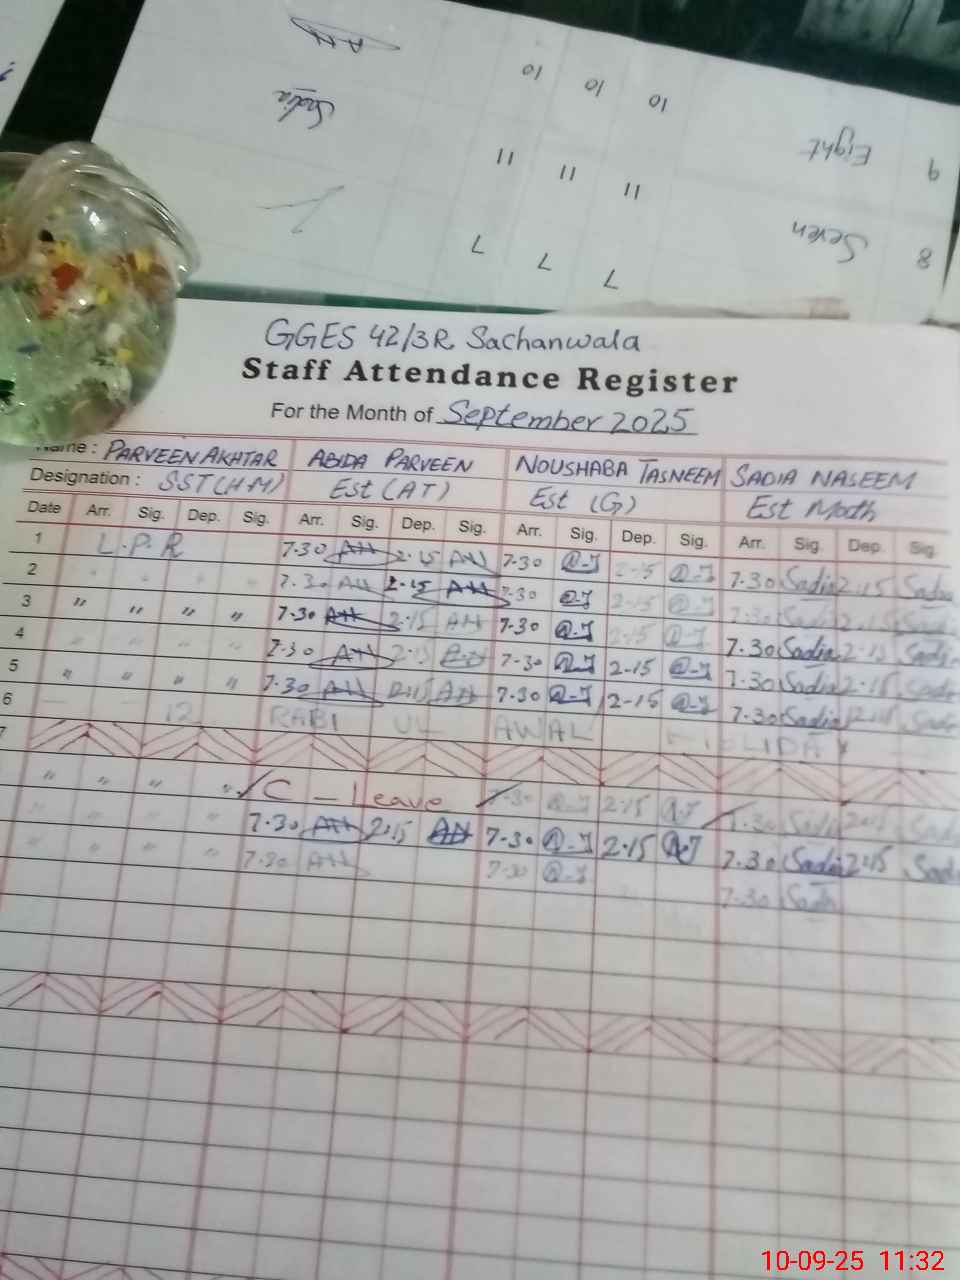 10 10 10
Sadia
Eight 9
11 11 11
Seven 8
7 7 7
GGES 42/3R Sachanwala
Staff Attendance Register
For the Month of September 2025
Name : PARVEEN AKHTAR ABIDA PARVEEN NOUSHABA TASNEEM SADIA NASEEM
Designation : SST (H.M) Est (AT) Est (G) Est Math
Date Arr. Sig. Dep. Sig. Arr. Sig. Dep. Sig. Arr. Sig. Dep. Sig. Arr. Sig. Dep. Sig.
1 L.P.R 7.30 AH 2.15 AH 7-30 @-J 2-15 @-J 7.30 Sadia 2.15 Sadia
2 " " " " 7.30 AH 2.15 AH 7-30 @J 2-15 @-J 7.30 Sadia 2.15 Sadia
3 " " " " 7.30 AH 2.15 AH 7.30 @-J 2-15 @-J 7.30 Sadia 2.15 Sadia
4 " " " " 7.30 AH 2.15 AH 7-30 @-J 2-15 @-J 7.30 Sadia 2.15 Sadia
5 " " " " 7.30 AH 2.15 AH 7-30 @-J 2-15 @-J 7.30 Sadia 2.15 Sadia
6 12 RABI UL AWAL HOLIDAY
7
" " " " C - Leave 7-30 @-J 2-15 @-J 7.30 Sadia 2.15 Sadia
" " " " 7.30 AH 2.15 AH 7-30 @-J 2-15 @-J 7.30 Sadia 2.15 Sadia
" " " " 7.30 AH 7-30 @-J 7.30 Sadia
10-09-25 11:32